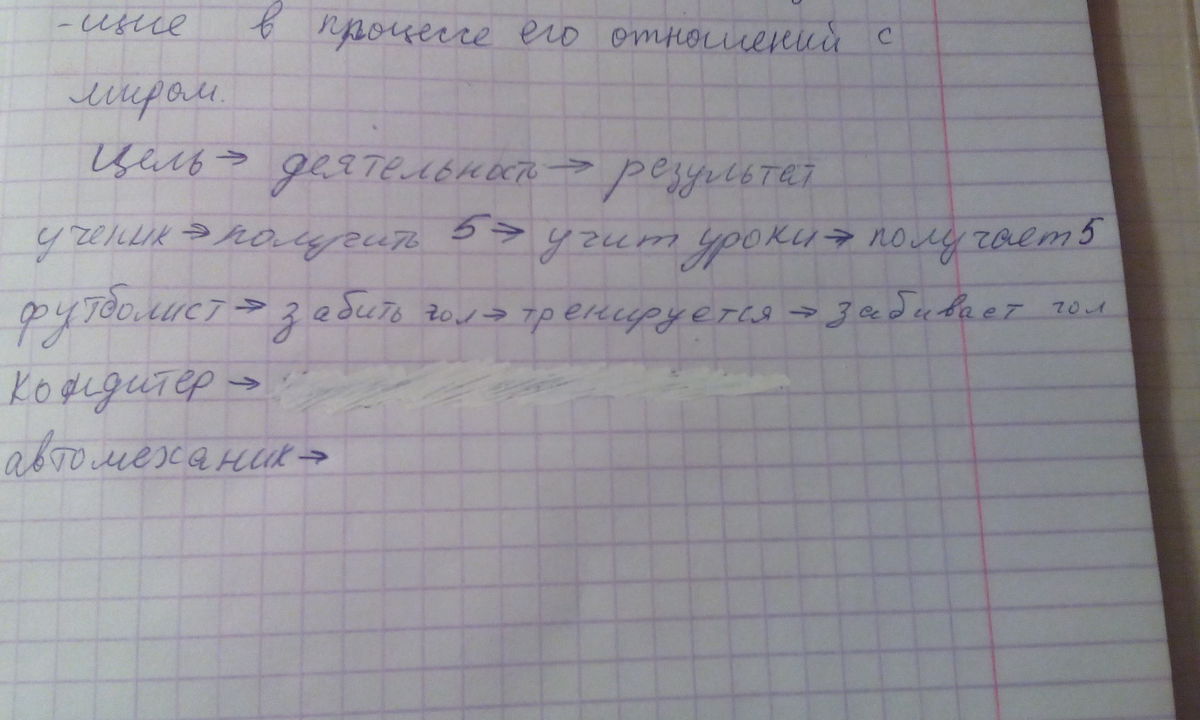 -щие в процессе его отношений с
миром.
Цель → деятельность → результат
ученик → получить 5 → учит уроки → получает 5
футболист → забить гол → тренируется → забивает гол
кондитер →
автомеханик →